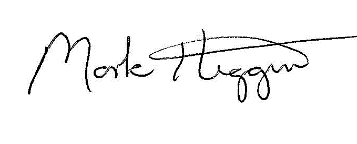 Mark Higgins